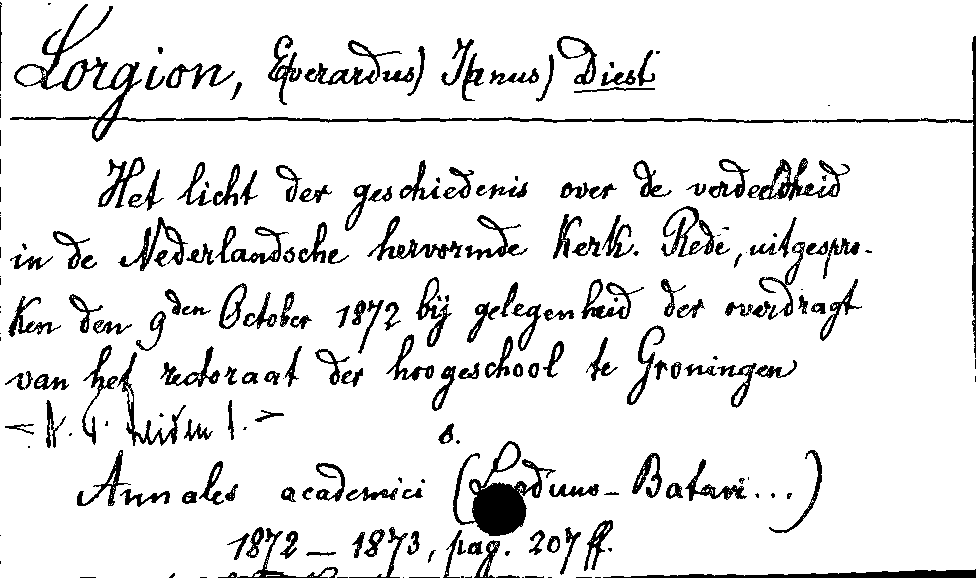 Lorgion, E(verardus) J(anus) Diest
Het licht der geschiedenis over de verdeeldheid
in de Nederlandsche hervormde Kerk. Rede, uitgespro-
ken den 9den October 1872 bij gelegenheid der overdragt
van het rectoraat der hoogeschool te Groningen
s.
Annales academici (Lugduno-Batavi...)
1872 – 1873, pag. 207 ff.